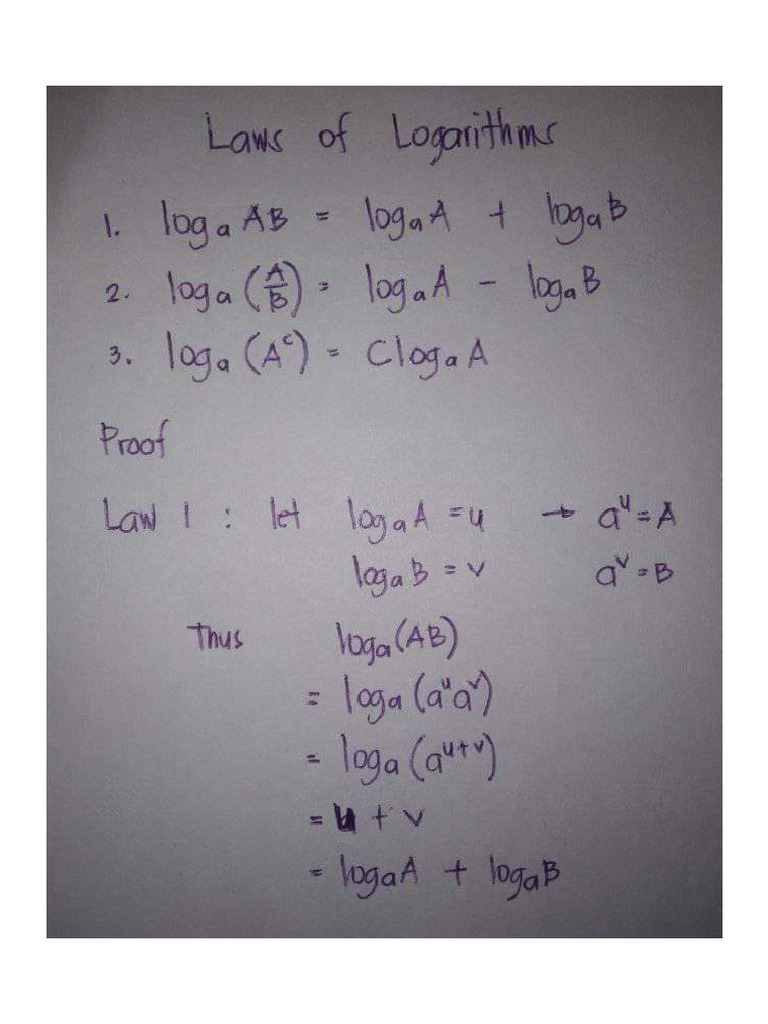 Laws of Logarithms
1. logₐ AB = logₐ A + logₐ B
2. logₐ (A/B) = logₐ A - logₐ B
3. logₐ (Aᶜ) = C logₐ A
Proof
Law 1 : let logₐ A = u → aᵘ = A
logₐ B = v aᵛ = B
Thus logₐ (AB)
= logₐ (aᵘaᵛ)
= logₐ (aᵘ⁺ᵛ)
= u + v
= logₐ A + logₐ B